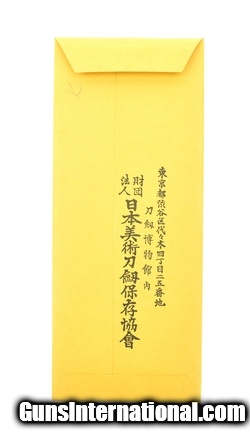 東京都渋谷区代々木四丁目二五番地
刀剱博物館内
財団
法人
日本美術刀剱保存協會
GunsInternational.com